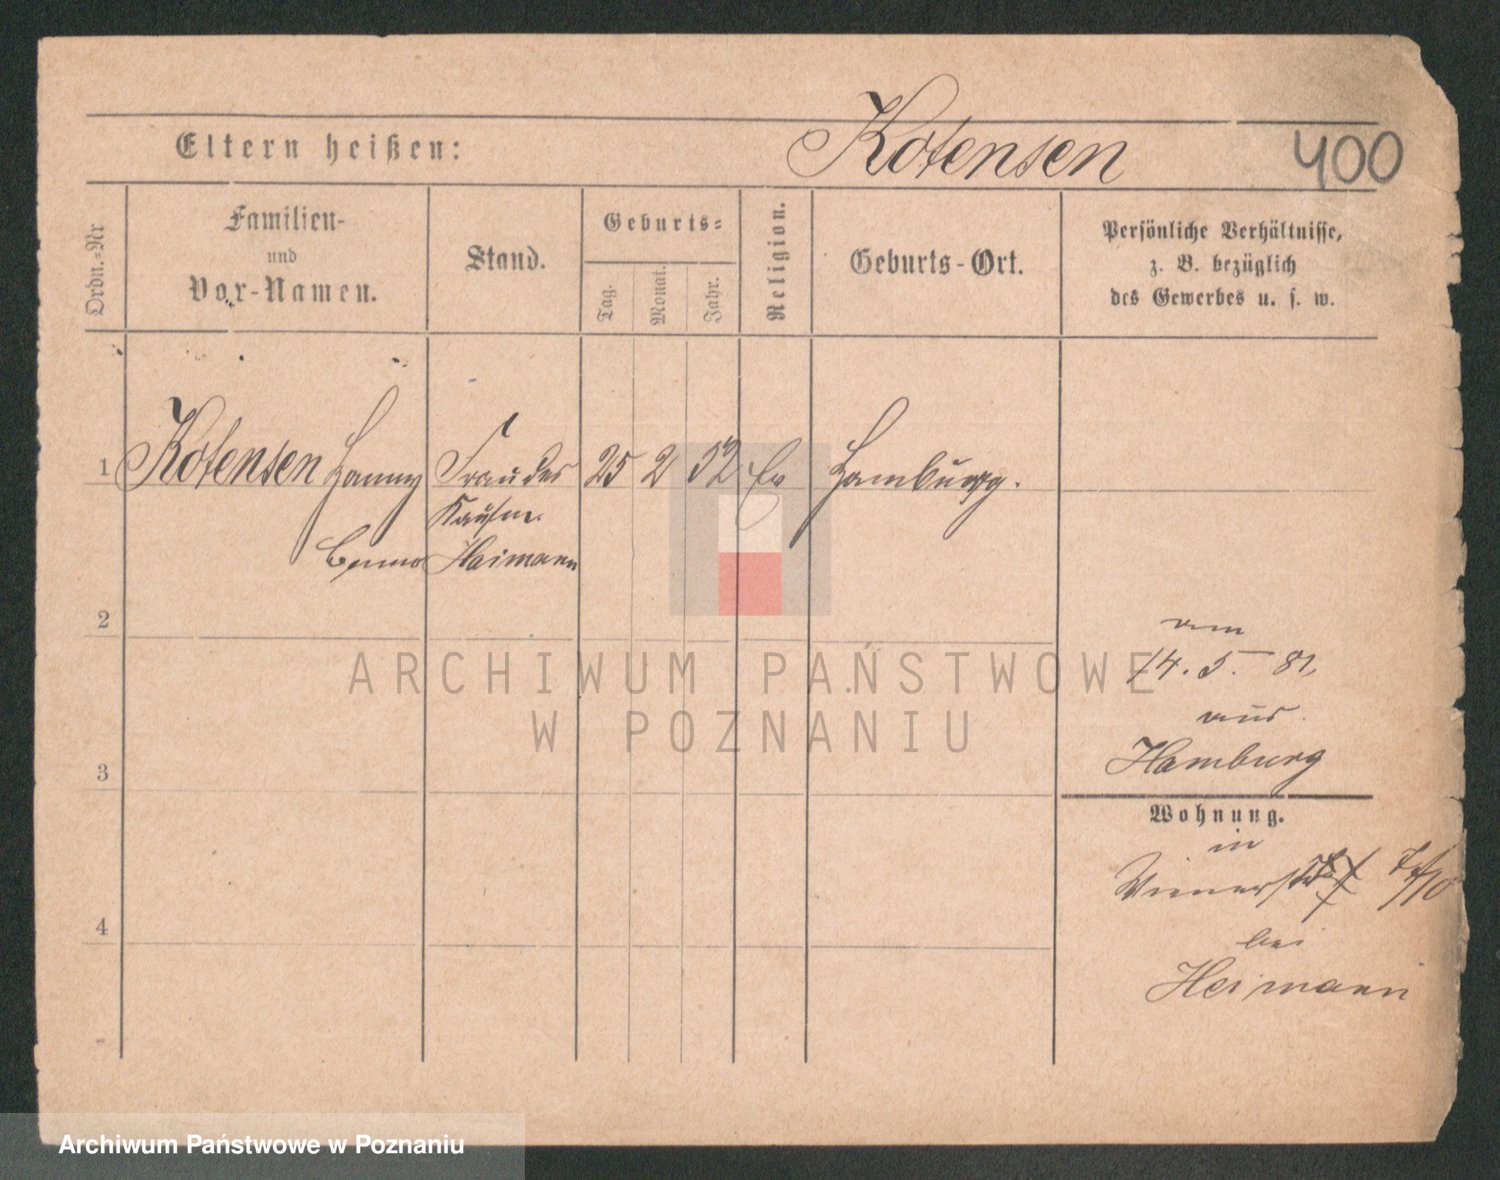 Kotensen
400
Eltern heißen:
Ordn.-Nr
Familien-
und
Vor-Namen.
Stand.
Geburts-
Tag.
Monat.
Jahr.
Religion.
Geburts-Ort.
Persönliche Verhältnisse,
z. B. bezüglich
des Gewerbes u. s. w.
1 Kotensen Hanny Frau des 25 2 52 Ev Hamburg.
Kaufm.
Benno Haimann
2
3
4
vom
14. 5. 81,
aus
Hamburg
Wohnung.
in
Wienerstr
bei
Heimann
ARCHIWUM PAŃSTWOWE
W POZNANIU
Archiwum Państwowe w Poznaniu